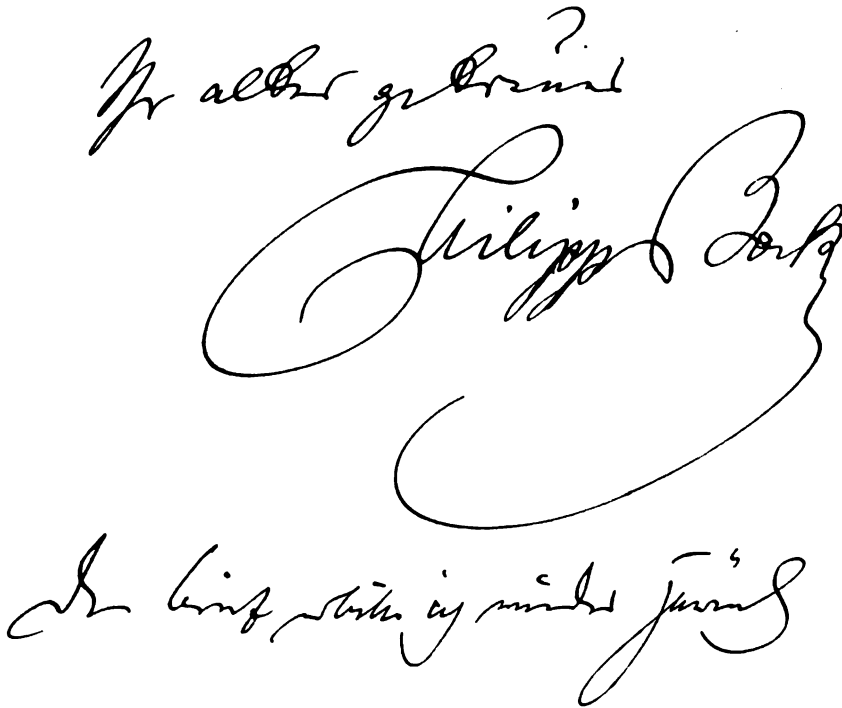 Ihr alter getreuer
Philipp Bockh
Den brief erbitte ich wieder zurück